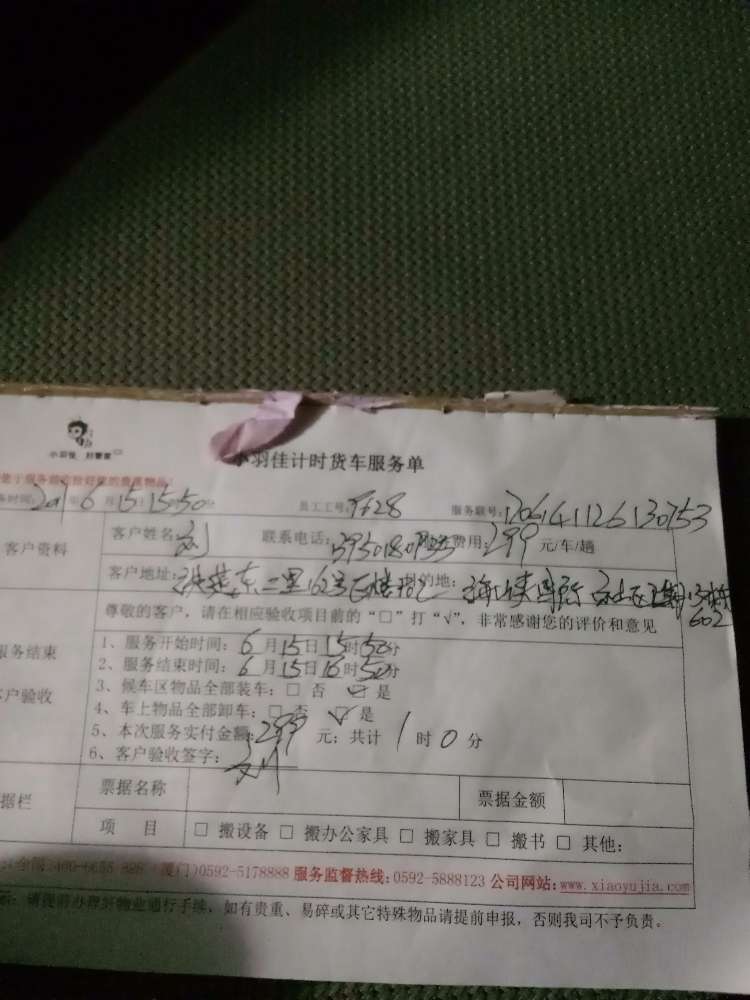 小羽佳 好管家
小羽佳计时货车服务单
务时间: 年 6 月 15 15:50分 员工工号: 9628 服务联号: 1706141126130753
客户资料
客户姓名: 刘 联系电话: 费用: 299 元/车/趟
客户地址: 东二里162号 的地: 海峡国际社区 602
尊敬的客户，请在相应验收项目前的“□”打“√”，非常感谢您的评价和意见
服务结束
客户验收
1、服务开始时间: 6 月 15 日 15 时 50 分
2、服务结束时间: 6 月 15 日 16 时 50 分
3、候车区物品全部装车: □ 否 ☑ 是
4、车上物品全部卸车: □ 否 ☑ 是
5、本次服务实付金额: 299 元: 共计 1 时 0 分
6、客户验收签字: 刘
据栏
票据名称 票据金额
项 目 □ 搬设备 □ 搬办公家具 □ 搬家具 □ 搬书 □ 其他:
厦门)0592-5178888 服务监督热线:0592-5888123 公司网站:www.xiaoyujia.com
请提前办理好物业通行手续，如有贵重、易碎或其它特殊物品请提前申报，否则我司不予负责。